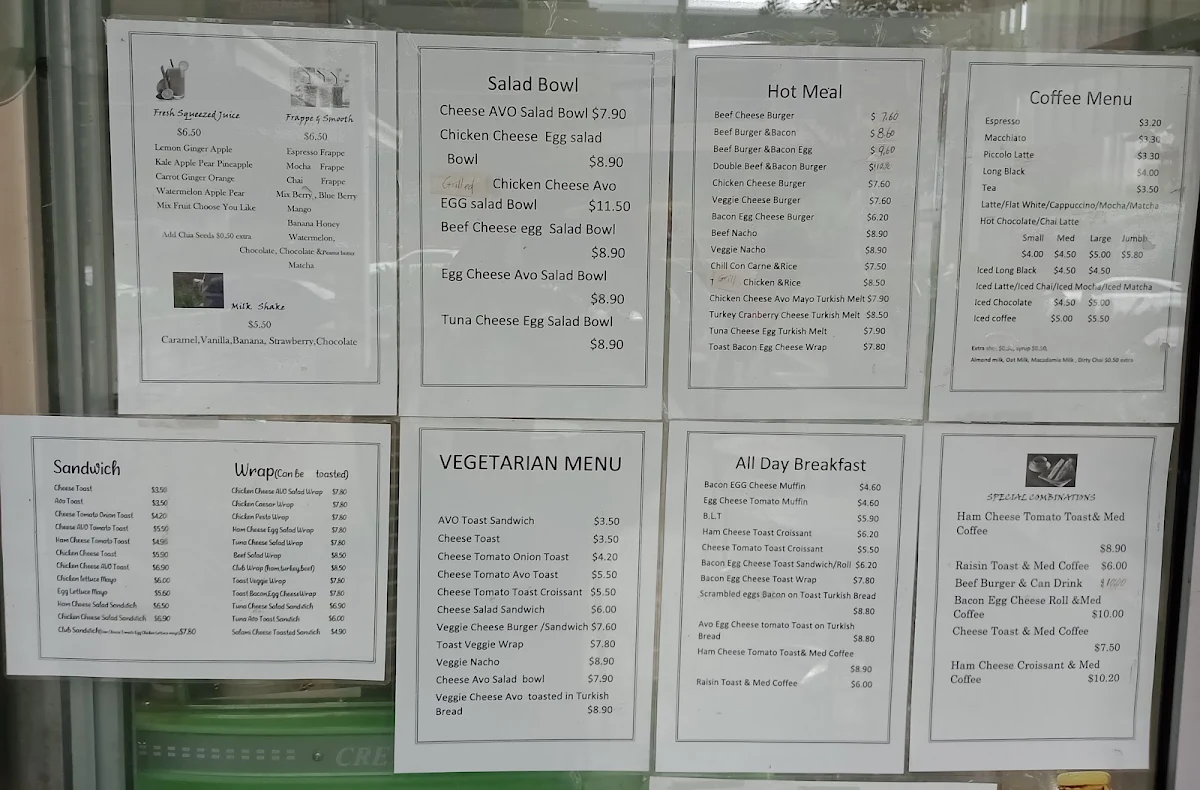 Fresh Squeezed Juice
$6.50
Lemon Ginger Apple
Kale Apple Pear Pineapple
Carrot Ginger Orange
Watermelon Apple Pear
Mix Fruit Choose You Like
Add Chia Seeds $0.50 extra
Frappe & Smooth
$6.50
Espresso Frappe
Mocha Frappe
Chai Frappe
Mix Berry, Blue Berry
Mango
Banana Honey
Watermelon,
Chocolate, Chocolate &Peanut butter
Matcha
Milk Shake
$5.50
Caramel,Vanilla,Banana, Strawberry,Chocolate
Salad Bowl
Cheese AVO Salad Bowl $7.90
Chicken Cheese Egg salad
Bowl $8.90
Grilled Chicken Cheese Avo
EGG salad Bowl $11.50
Beef Cheese egg Salad Bowl
$8.90
Egg Cheese Avo Salad Bowl
$8.90
Tuna Cheese Egg Salad Bowl
$8.90
Hot Meal
Beef Cheese Burger $ 7.60
Beef Burger &Bacon $ 8.60
Beef Burger &Bacon Egg $ 9.60
Double Beef &Bacon Burger
Chicken Cheese Burger $7.60
Veggie Cheese Burger $7.60
Bacon Egg Cheese Burger $6.20
Beef Nacho $8.90
Veggie Nacho $8.90
Chill Con Carne &Rice $7.50
Chicken &Rice $8.50
Chicken Cheese Avo Mayo Turkish Melt $7.90
Turkey Cranberry Cheese Turkish Melt $8.50
Tuna Cheese Egg Turkish Melt $7.90
Toast Bacon Egg Cheese Wrap $7.80
Coffee Menu
Espresso $3.20
Macchiato $3.30
Piccolo Latte $3.30
Long Black $4.00
Tea $3.50
Latte/Flat White/Cappuccino/Mocha/Matcha
Hot Chocolate/Chai Latte
Small Med Large Jumbo
$4.00 $4.50 $5.00 $5.80
Iced Long Black $4.50 $4.50
Iced Latte/Iced Chai/Iced Mocha/Iced Matcha
Iced Chocolate $4.50 $5.00
Iced coffee $5.00 $5.50
Extra syrup $0.50,
Almond milk, Oat Milk, Macadamia Milk , Dirty Chai $0.50 extra
Sandwich
Cheese Toast $3.50
Avo Toast $3.50
Cheese Tomato Onion Toast $4.20
Cheese AVO Tomato Toast $5.50
Ham Cheese Tomato Toast $4.90
Chicken Cheese Toast $5.90
Chicken Cheese AVO Toast $6.90
Chicken lettuce Mayo $6.00
Egg Lettuce Mayo $5.60
Ham Cheese Salad Sandwich $6.50
Chicken Cheese Salad Sandwich $6.90
Club Sandwich $7.80
Wrap(Can be toasted)
Chicken Cheese AVO Salad Wrap $7.80
Chicken Caesar Wrap $7.80
Chicken Pesto Wrap $7.80
Ham Cheese Egg Salad Wrap $7.80
Tuna Cheese Salad Wrap $7.80
Beef Salad Wrap $8.50
Club Wrap (ham,turkey,beef) $8.50
Toast Veggie Wrap $7.80
Toast Bacon Egg CheeseWrap $7.80
Tuna Cheese Salad Sandwich $6.90
Tuna Avo Toast Sandwich $6.00
Salami Cheese Toasted Sandwich $4.90
VEGETARIAN MENU
AVO Toast Sandwich $3.50
Cheese Toast $3.50
Cheese Tomato Onion Toast $4.20
Cheese Tomato Avo Toast $5.50
Cheese Tomato Toast Croissant $5.50
Cheese Salad Sandwich $6.00
Veggie Cheese Burger /Sandwich $7.60
Toast Veggie Wrap $7.80
Veggie Nacho $8.90
Cheese Avo Salad bowl $7.90
Veggie Cheese Avo toasted in Turkish
Bread $8.90
All Day Breakfast
Bacon EGG Cheese Muffin $4.60
Egg Cheese Tomato Muffin $4.60
B.L.T $5.90
Ham Cheese Toast Croissant $6.20
Cheese Tomato Toast Croissant $5.50
Bacon Egg Cheese Toast Sandwich/Roll $6.20
Bacon Egg Cheese Toast Wrap $7.80
Scrambled eggs Bacon on Toast Turkish Bread
$8.80
Avo Egg Cheese tomato Toast on Turkish
Bread $8.80
Ham Cheese Tomato Toast& Med Coffee
$8.90
Raisin Toast & Med Coffee $6.00
SPECIAL COMBINATIONS
Ham Cheese Tomato Toast& Med
Coffee
$8.90
Raisin Toast & Med Coffee $6.00
Beef Burger & Can Drink
Bacon Egg Cheese Roll &Med
Coffee $10.00
Cheese Toast & Med Coffee
$7.50
Ham Cheese Croissant & Med
Coffee $10.20
CRE